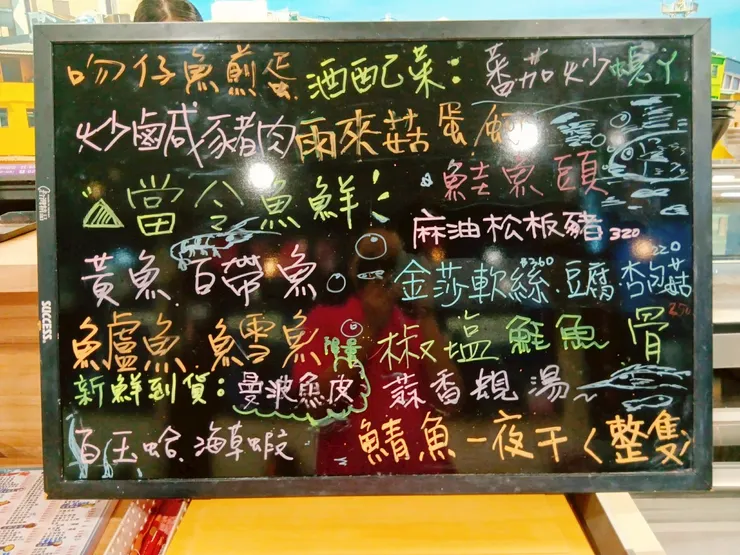 吻仔魚煎蛋 酒配菜: 蕃茄炒蜆丫
炒鹹豬肉 雨來菇蛋
當令魚鮮! 鮭魚頭
麻油松板豬 320
黃魚.白帶魚
金莎軟絲 $360 .豆腐.杏包菇 220
鱸魚 鱈魚
椒塩鮭魚骨 270
新鮮到貨: 曼波魚皮
蒜香蜆湯~
白玉蛤.海草蝦
鯖魚一夜干<整隻>
SUCCESS